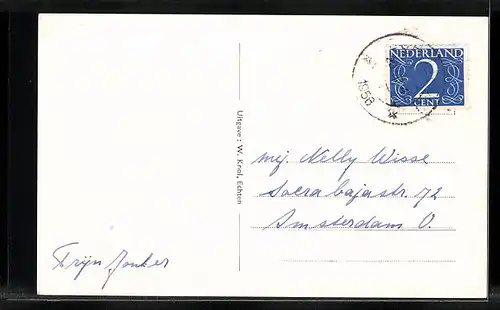 NEDERLAND
2
CENT
1956
Uitgave: W. Knol, Echten
mej. Nelly Wisse
Soerabajastr. 72
Amsterdam O.
Trijn Jonker